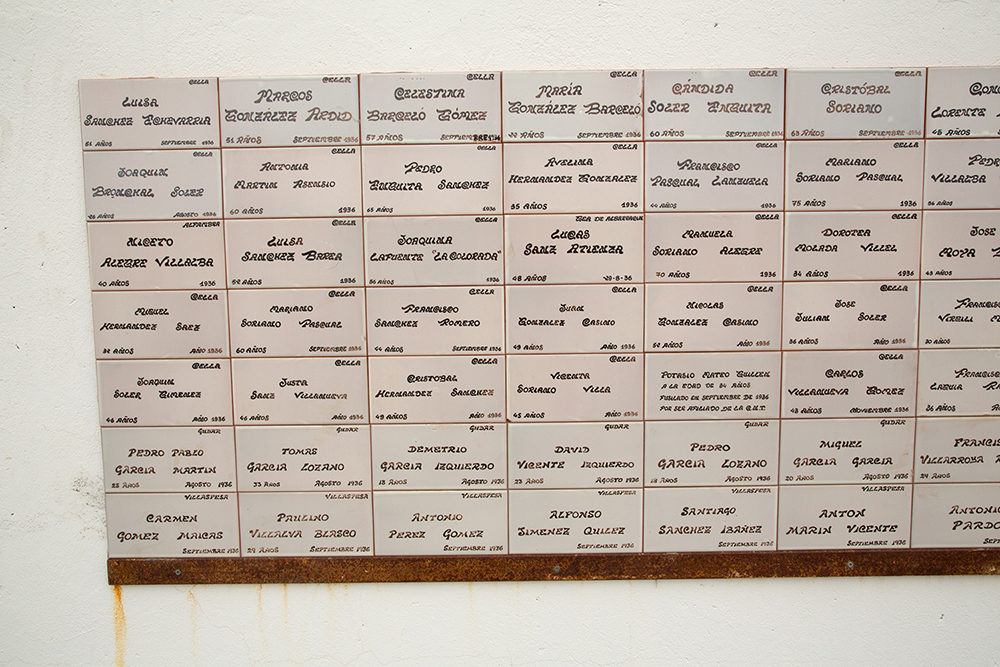 CELLA
LUISA
SANCHEZ ECHEVARRIA
51 AÑOS SEPTIEMBRE 1936
CELLA
MARCOS
GONZÁLEZ ARDID
51 AÑOS SEPTIEMBRE 1936
CELLA
CELESTINA
BARCELÓ GÓMEZ
57 AÑOS
CELLA
MARÍA
GONZÁLEZ BARCELÓ
22 AÑOS SEPTIEMBRE 1936
CELLA
CÁNDIDA
SOLER ENGUITA
60 AÑOS SEPTIEMBRE 1936
CELLA
CRISTÓBAL
SORIANO
63 AÑOS SEPTIEMBRE 1936
LORENTE
45 AÑOS
CELLA
JOAQUIN
BRONCHAL SOLER
26 AÑOS AGOSTO 1936
CELLA
ANTONIA
MARTIN ASENSIO
60 AÑOS 1936
CELLA
PEDRO
ENGUITA SANCHEZ
65 AÑOS 1936
CELLA
AVELINA
HERNANDEZ GONZALEZ
35 AÑOS 1936
CELLA
FRANCISCO
PASCUAL LANZUELA
44 AÑOS 1936
CELLA
MARIANO
SORIANO PASCUAL
75 AÑOS 1936
VILLALBA
36 AÑOS
ALFAMBRA
NICETO
ALEGRE VILLALBA
40 AÑOS 1936
CELLA
LUISA
SANCHEZ BAREA
52 AÑOS 1936
CELLA
JOAQUINA
LAFUENTE "LA COLORADA"
56 AÑOS 1936
GEA DE ALBARRACIN
LUCAS
SANZ ATIENZA
48 AÑOS -29-8-36
CELLA
MANUELA
SORIANO ALEGRE
70 AÑOS 1936
CELLA
DOROTEA
MOLADA VILLEL
34 AÑOS 1936
JOSE
MOYA
43 AÑOS
CELLA
MIGUEL
HERNANDEZ SAEZ
32 AÑOS AÑO 1936
CELLA
MARIANO
SORIANO PASCUAL
60 AÑOS SEPTIEMBRE 1936
CELLA
FRANCISCO
SANCHEZ ROMERO
44 AÑOS SEPTIEMBRE 1936
CELLA
JUAN
GONZALEZ CASINO
49 AÑOS AÑO 1936
CELLA
NICOLAS
GONZALEZ CASINO
52 AÑOS AÑO 1936
CELLA
JOSE
JULIAN SOLER
36 AÑOS AÑO 1936
30 AÑOS
CELLA
JOAQUIN
SOLER GIMENEZ
46 AÑOS AÑO 1936
CELLA
JUSTA
SANZ VILLANUEVA
46 AÑOS AÑO 1936
CELLA
CRISTOBAL
HERNANDEZ SANCHEZ
49 AÑOS AÑO 1936
CELLA
VICENTA
SORIANO VILLA
45 AÑOS AÑO 1936
POTASIO MATEO GUILLEN
A LA EDAD DE 34 AÑOS
FUSILADO EN SEPTIEMBRE DE 1936
POR SER AFILIADO DE LA C.N.T.
CELLA
CARLOS
VILLANUEVA GOMEZ
48 AÑOS NOVIEMBRE 1936
LAGUIA
36 AÑOS
GUDAR
PEDRO PABLO
GARCIA MARTIN
23 AÑOS AGOSTO 1936
GUDAR
TOMAS
GARCIA LOZANO
33 AÑOS AGOSTO 1936
GUDAR
DEMETRIO
GARCIA IZQUIERDO
18 AÑOS AGOSTO 1936
GUDAR
DAVID
VICENTE IZQUIERDO
23 AÑOS AGOSTO 1936
GUDAR
PEDRO
GARCIA LOZANO
18 AÑOS AGOSTO 1936
GUDAR
MIGUEL
GARCIA GARCIA
20 AÑOS AGOSTO 1936
VILLARROYA
24 AÑOS
VILLASPESA
CARMEN
GOMEZ MAICAS
SEPTIEMBRE 1936
VILLASPESA
PAULINO
VILLALVA BLASCO
29 AÑOS SEPTIEMBRE 1936
VILLASPESA
ANTONIO
PEREZ GOMEZ
SEPTIEMBRE 1936
VILLASPESA
ALFONSO
SIMENEZ QUILEZ
SEPTIEMBRE 1936
VILLASPESA
SANTIAGO
SANCHEZ IBAÑEZ
SEPTIEMBRE 1936
VILLASPESA
ANTON
MARIN VICENTE
SEPTIEMBRE 1936